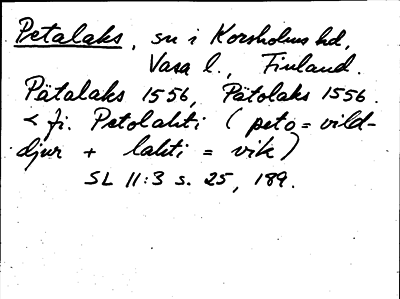 Petalaks, sn i Korsholms hd,
Vasa l., Finland.
Pätalaks 1556, Pätolaks 1556.
< fi. Petolahti (peto = vild-
djur + lahti = vik)
SL 11:3 s. 25, 189.